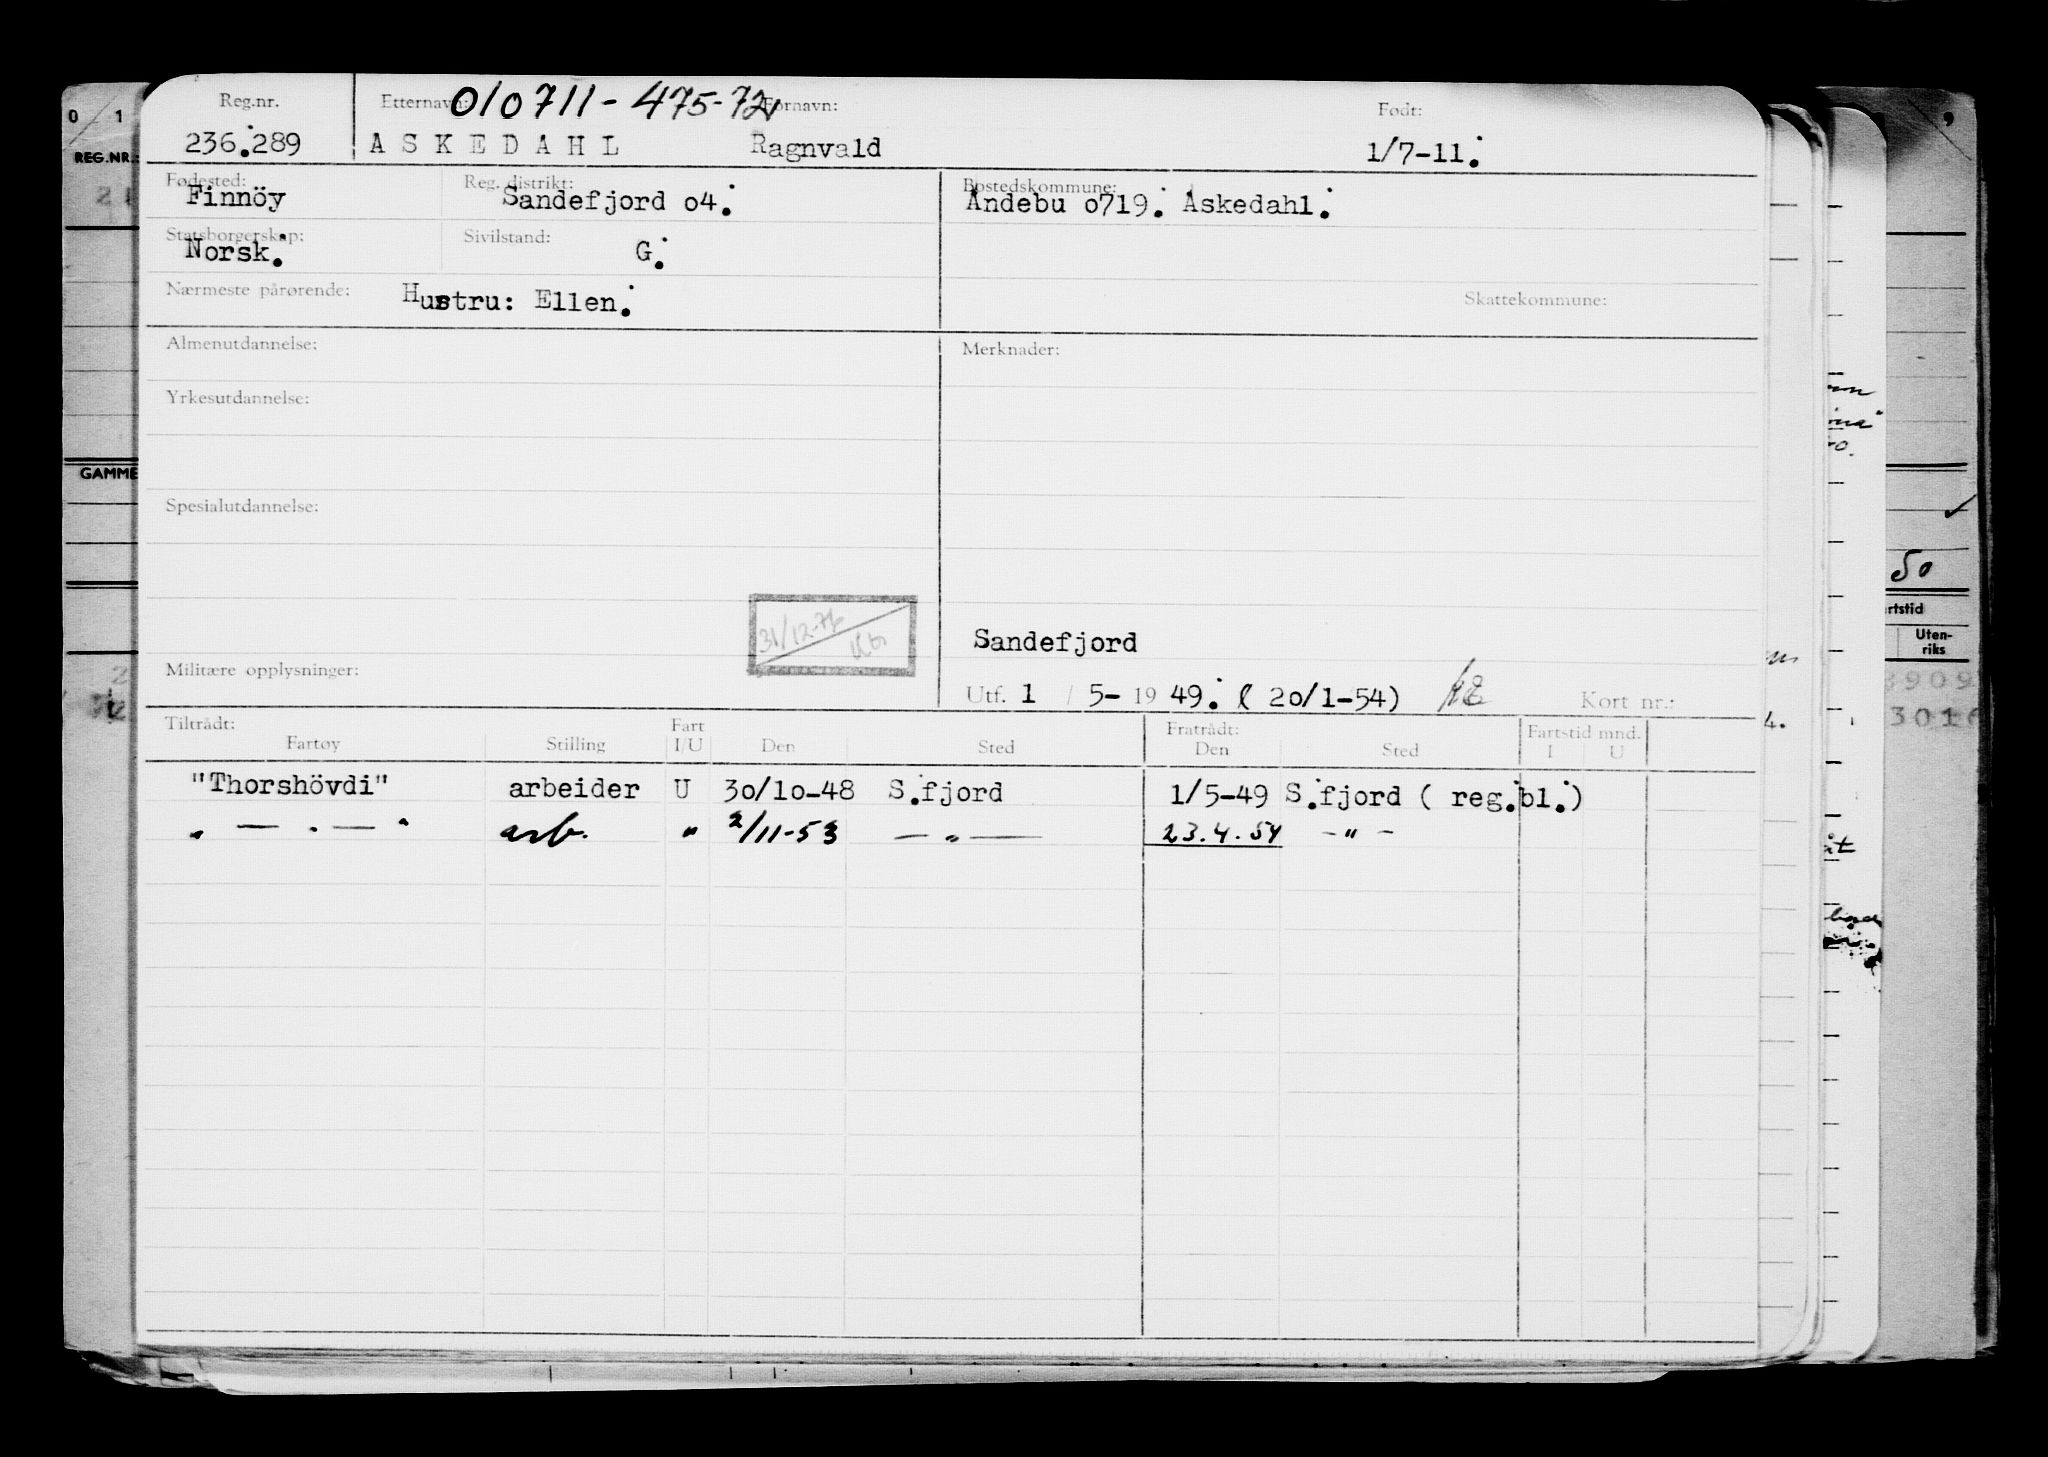 Reg.nr. Etternavn: 010711-475-72 Fornavn: Født:
236.289 ASKEDAHL Ragnvald 1/7-11.
Fødested: Reg. distrikt: Bostedskommune:
Finnöy Sandefjord o4. Andebu o719. Askedahl.
Statsborgerskap: Sivilstand:
Norsk. G.
Nærmeste pårørende: Hustru: Ellen. Skattekommune:
Almenutdannelse: Merknader:
Yrkesutdannelse:
Spesialutdannelse:
31/12-76
Sandefjord
Militære opplysninger:
Utf. 1 / 5- 19 49. ( 20/1-54) Kort nr.:
Tiltrådt: Fart Fratrådt: Fartstid mnd.
Fartøy Stilling I/U Den Sted Den Sted I U
"Thorshövdi" arbeider U 30/10-48 S.fjord 1/5-49 S.fjord ( reg.bl.)
" — " — " arb. " 2/11-53 — " — 23.4.54 - " -
0 1
REG.NR.:
GAMME
50
rtstid
Uten-
riks
3909
3016